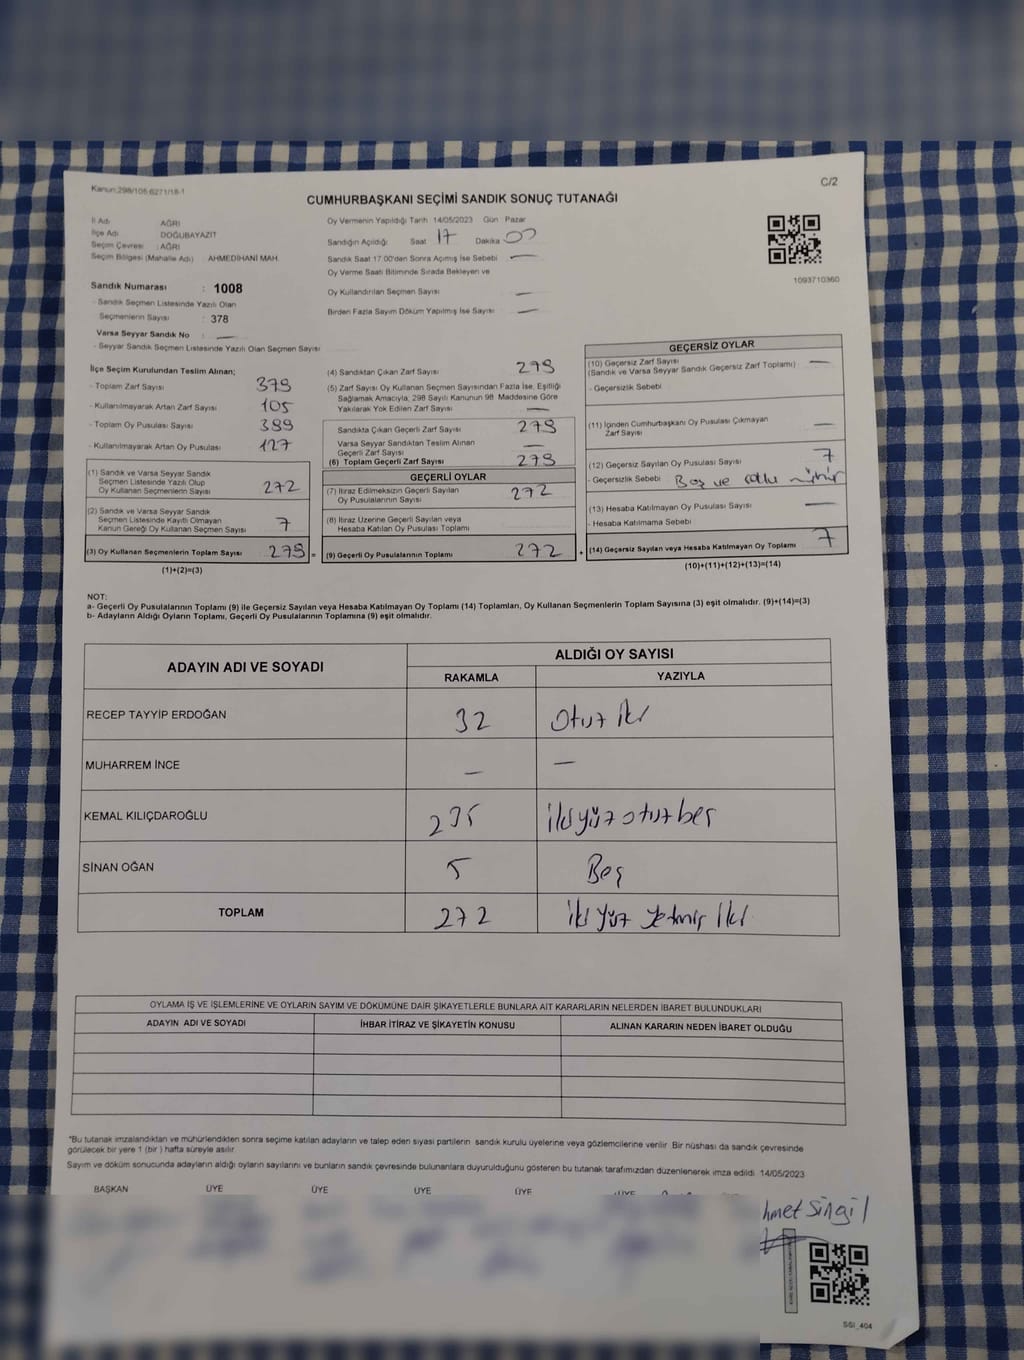 Kanun:298/105 6271/18-1
C/2
CUMHURBAŞKANI SEÇİMİ SANDIK SONUÇ TUTANAĞI
İl Adı AĞRI
İlçe Adı DOĞUBAYAZIT
Seçim Çevresi : AĞRI
Seçim Bölgesi (Mahalle Adı) : AHMEDİHANİ MAH.
Oy Vermenin Yapıldığı Tarih 14/05/2023 Gün Pazar
Sandığın Açıldığı Saat 17 Dakika 00
Sandık Saat 17.00'den Sonra Açımış İse Sebebi —
Oy Verme Saati Bitiminde Sırada Bekleyen ve
Oy Kullandırılan Seçmen Sayısı —
Birden Fazla Sayım Döküm Yapılmış İse Sayısı —
1093710360
Sandık Numarası : 1008
- Sandık Seçmen Listesinde Yazılı Olan
Seçmenlerin Sayısı : 378
Varsa Seyyar Sandık No : —
- Seyyar Sandık Seçmen Listesinde Yazılı Olan Seçmen Sayısı
İlçe Seçim Kurulundan Teslim Alınan;
- Toplam Zarf Sayısı 379
- Kullanılmayarak Artan Zarf Sayısı 105
- Toplam Oy Pusulası Sayısı 399
- Kullanılmayarak Artan Oy Pusulası 127
(1) Sandık ve Varsa Seyyar Sandık
Seçmen Listesinde Yazılı Olup
Oy Kullanan Seçmenlerin Sayısı 272
(2) Sandık ve Varsa Seyyar Sandık
Seçmen Listesinde Kayıtlı Olmayan
Kanun Gereği Oy Kullanan Seçmen Sayısı 7
(3) Oy Kullanan Seçmenlerin Toplam Sayısı 279 =
(1)+(2)=(3)
(4) Sandıktan Çıkan Zarf Sayısı 279
(5) Zarf Sayısı Oy Kullanan Seçmen Sayısından Fazla İse, Eşitliği
Sağlamak Amacıyla, 298 Sayılı Kanunun 98. Maddesine Göre
Yakılarak Yok Edilen Zarf Sayısı —
Sandıkta Çıkan Geçerli Zarf Sayısı 279
Varsa Seyyar Sandıktan Teslim Alınan
Geçerli Zarf Sayısı —
(6) Toplam Geçerli Zarf Sayısı 279
GEÇERLİ OYLAR
(7) İtiraz Edilmeksizin Geçerli Sayılan
Oy Pusulalarının Sayısı 272
(8) İtiraz Üzerine Geçerli Sayılan veya
Hesaba Katılan Oy Pusulası Toplamı
(9) Geçerli Oy Pusulalarının Toplamı 272 +
GEÇERSİZ OYLAR
(10) Geçersiz Zarf Sayısı —
(Sandık ve Varsa Seyyar Sandık Geçersiz Zarf Toplamı)
- Geçersizlik Sebebi
(11) İçinden Cumhurbaşkanı Oy Pusulası Çıkmayan
Zarf Sayısı —
(12) Geçersiz Sayılan Oy Pusulası Sayısı 7
- Geçersizlik Sebebi Boş ve
(13) Hesaba Katılmayan Oy Pusulası Sayısı —
- Hesaba Katılmama Sebebi
(14) Geçersiz Sayılan veya Hesaba Katılmayan Oy Toplamı 7
(10)+(11)+(12)+(13)=(14)
NOT:
a- Geçerli Oy Pusulalarının Toplamı (9) ile Geçersiz Sayılan veya Hesaba Katılmayan Oy Toplamı (14) Toplamları, Oy Kullanan Seçmenlerin Toplam Sayısına (3) eşit olmalıdır. (9)+(14)=(3)
b- Adayların Aldığı Oyların Toplamı, Geçerli Oy Pusulalarının Toplamına (9) eşit olmalıdır.
ADAYIN ADI VE SOYADI ALDIĞI OY SAYISI
RAKAMLA YAZIYLA
RECEP TAYYİP ERDOĞAN 32 otuz iki
MUHARREM İNCE — —
KEMAL KILIÇDAROĞLU 235 iki yüz otuz beş
SİNAN OĞAN 5 Beş
TOPLAM 272 iki yüz yetmiş iki
OYLAMA İŞ VE İŞLEMLERİNE VE OYLARIN SAYIM VE DÖKÜMÜNE DAİR ŞİKAYETLERLE BUNLARA AİT KARARLARIN NELERDEN İBARET BULUNDUKLARI
ADAYIN ADI VE SOYADI İHBAR İTİRAZ VE ŞİKAYETİN KONUSU ALINAN KARARIN NEDEN İBARET OLDUĞU
*Bu tutanak imzalandıktan ve mühürlendikten sonra seçime katılan adayların ve talep eden siyasi partilerin sandık kurulu üyelerine veya gözlemcilerine verilir. Bir nüshası da sandık çevresinde
görülecek bir yere 1 (bir) hafta süreyle asılır.
Sayım ve döküm sonucunda adayların aldığı oyların sayılarını ve bunların sandık çevresinde bulunanlara duyurulduğunu gösteren bu tutanak tarafımızdan düzenlenerek imza edildi. 14/05/2023
BAŞKAN ÜYE ÜYE ÜYE ÜYE ÜYE
hmet Singil
SSI_404